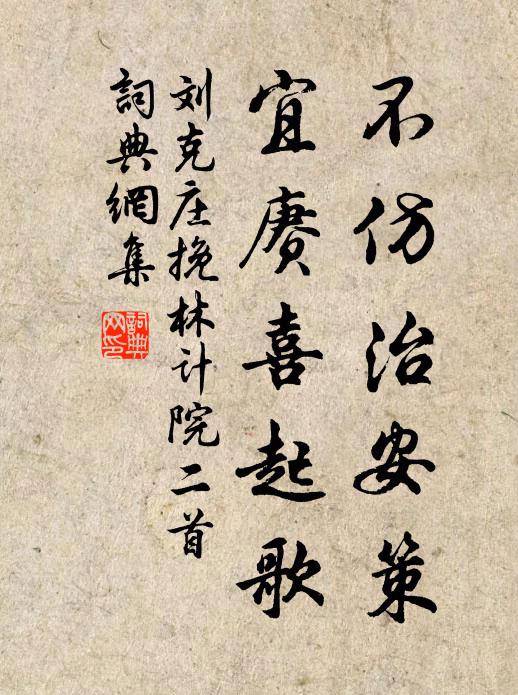 不仿治安策
宜赓喜起歌
刘克庄挽林计院二首
詞典網集
詞典网印